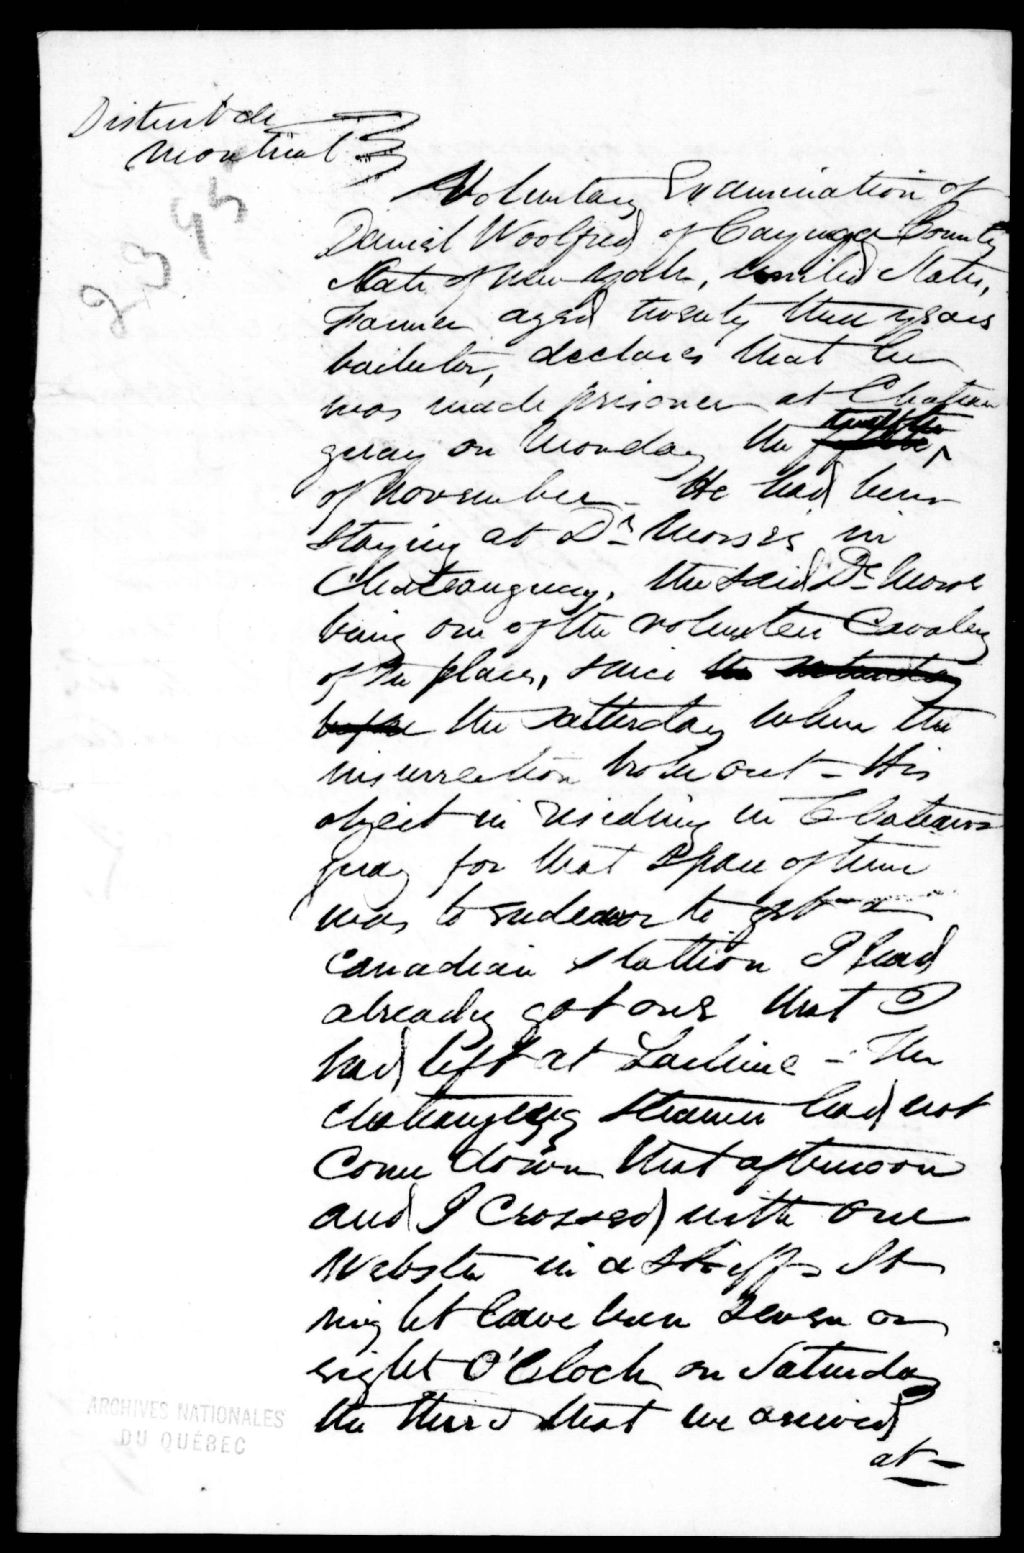 District de
Montreal
2345
Voluntary Examination of
Daniel Woolfred of Cayuga County
State of New York, United States,
Farmer aged twenty three years
bachelor, declares that he
was made prisoner at Chateau
guay on Monday the twelfth
of November - He had been
staying at Dr. Morses in
Chateauguay, the said Dr. Morse
being one of the volunteer Cavalry
of the place, since the saturday
before the Satturday when the
insurrection broke out - His
object in residing in Chateau
guay for that space of time
was to endeavor to get a
Canadian stallion I had
already got one that I
had left at Lachine - The
steamer had not
come down that afternoon
and I crossed with one
Webster in a skiff - It
might have been seven or
eight O'Clock on Saturday
the third that we arrived
at -
ARCHIVES NATIONALES
DU QUÉBEC